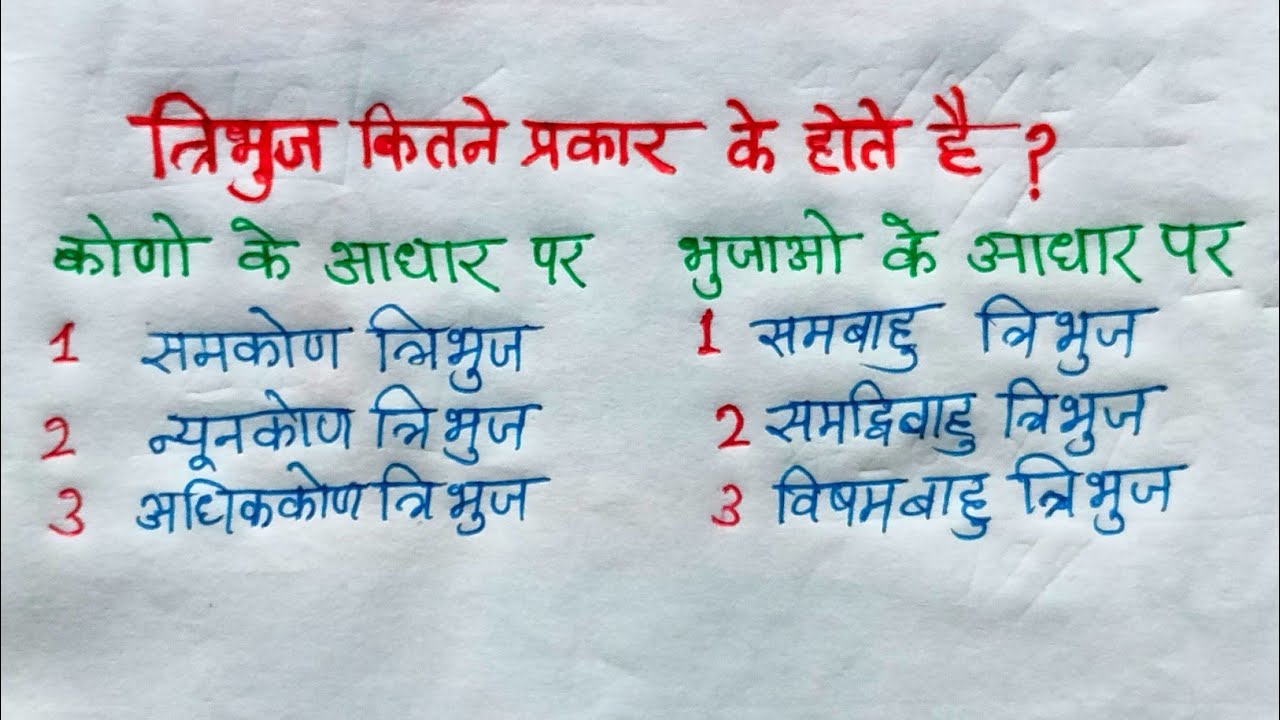 त्रिभुज कितने प्रकार के होते है ?
कोणो के आधार पर
1 समकोण त्रिभुज
2 न्यूनकोण त्रिभुज
3 अधिककोण त्रिभुज
भुजाओ के आधार पर
1 समबाहु त्रिभुज
2 समद्विबाहु त्रिभुज
3 विषमबाहु त्रिभुज